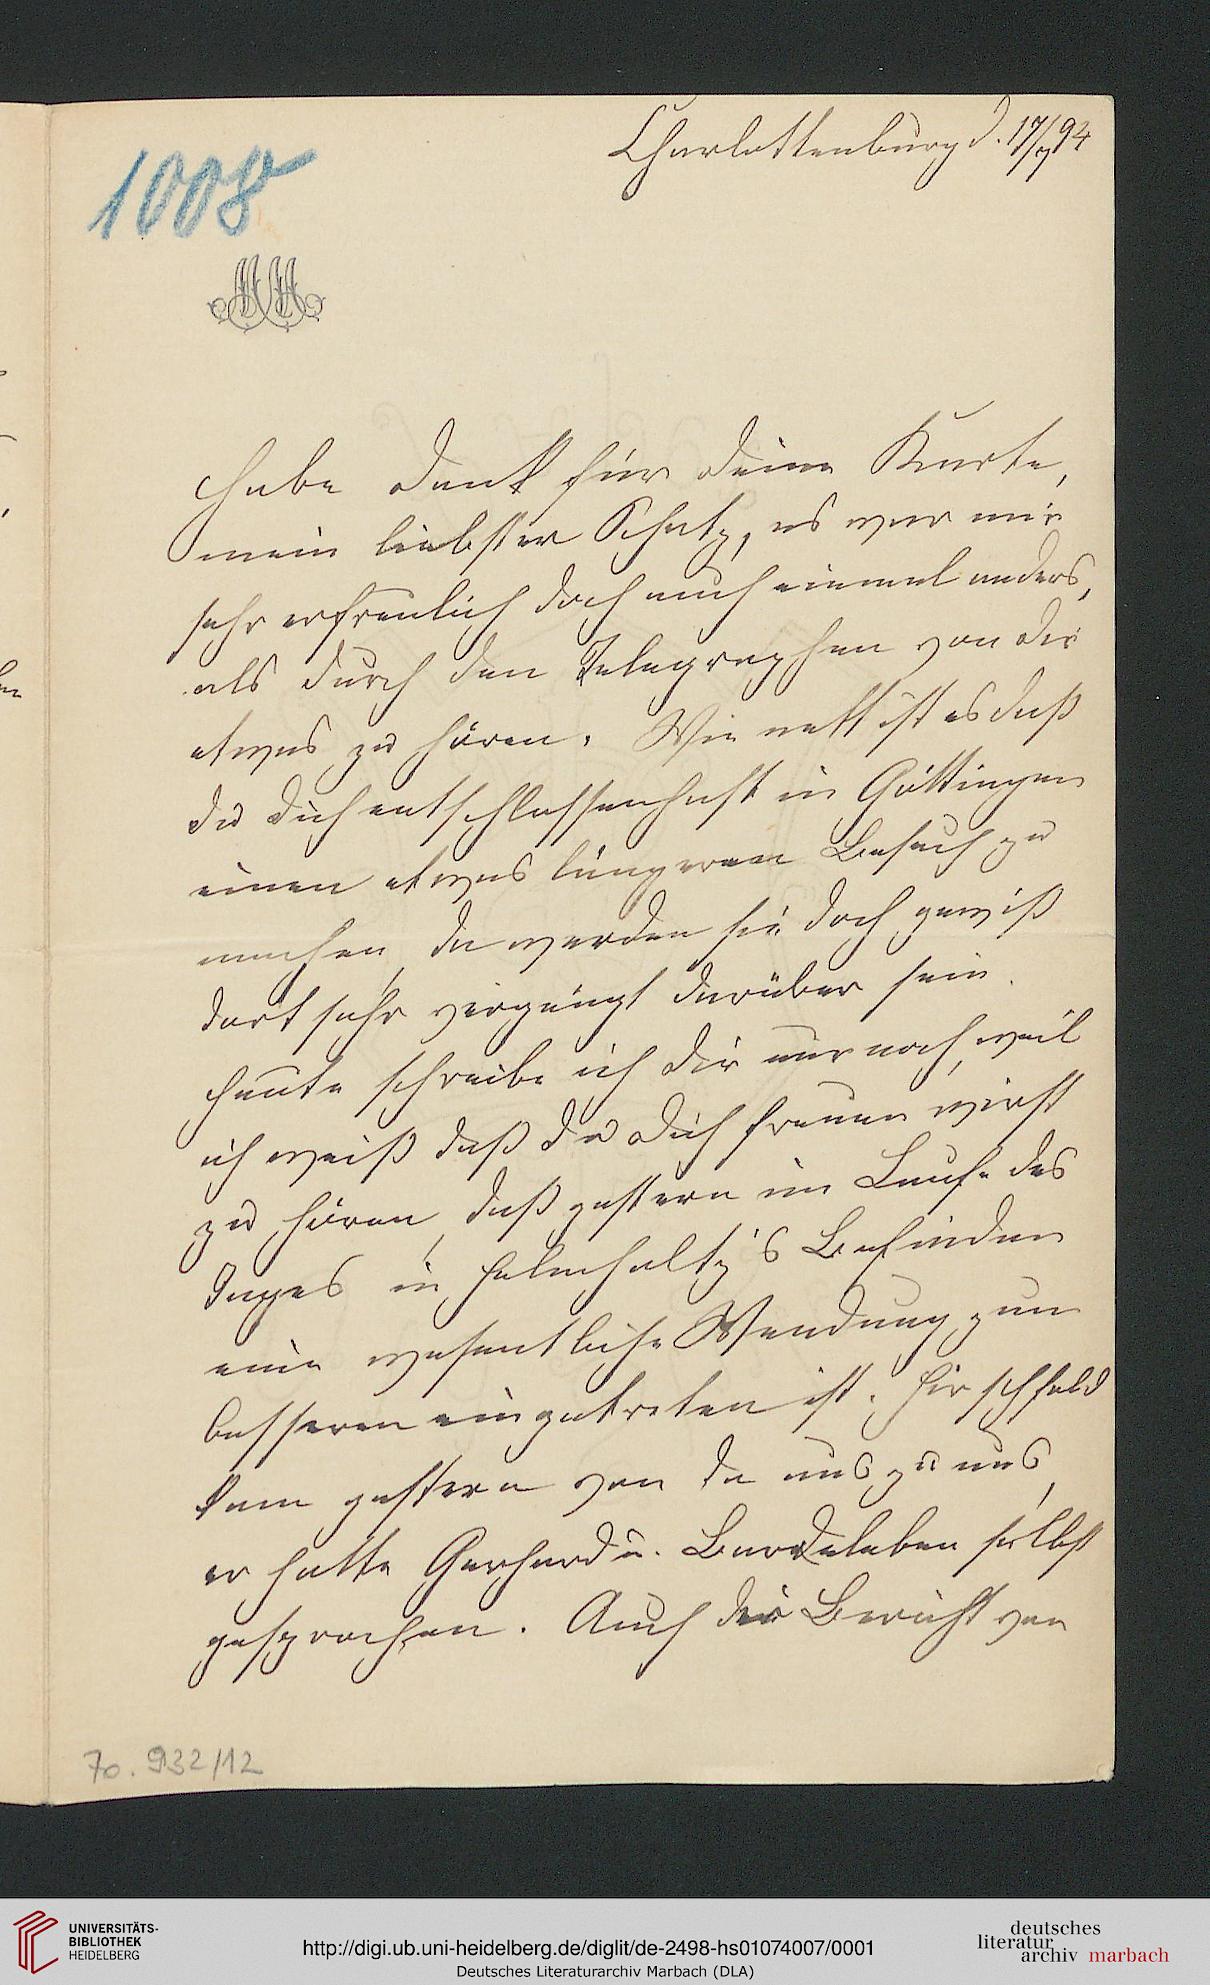 Charlottenburg d. 17/7 94
1008
Habe Dank für deine Karte,
mein liebster Schatz, es war mir
sehr erfreulich doch auch einmal anders,
als durch den Telegraphen von dir
etwas zu hören. Wie nett ist es daß
du dich entschlossen hast in Göttingen
einen etwas längeren Besuch zu
machen, da werden sie doch gewiß
dort sehr vergnügt darüber sein.
Heute schreibe ich dir nur noch, weil
ich weiß daß du dich freuen wirst
zu hören, daß gestern im Laufe des
Tages in Helmholtz's Befinden
eine wesentliche Wendung zum
besseren eingetreten ist. Hirschfeld
kam gestern von da aus zu uns,
er hatte Gerhard u. Bardeleben selbst
gesprochen. Auch der Bericht von
70.932/12
UNIVERSITÄTS-
BIBLIOTHEK
HEIDELBERG
http://digi.ub.uni-heidelberg.de/diglit/de-2498-hs01074007/0001
Deutsches Literaturarchiv Marbach (DLA)
deutsches
literatur
archiv marbach